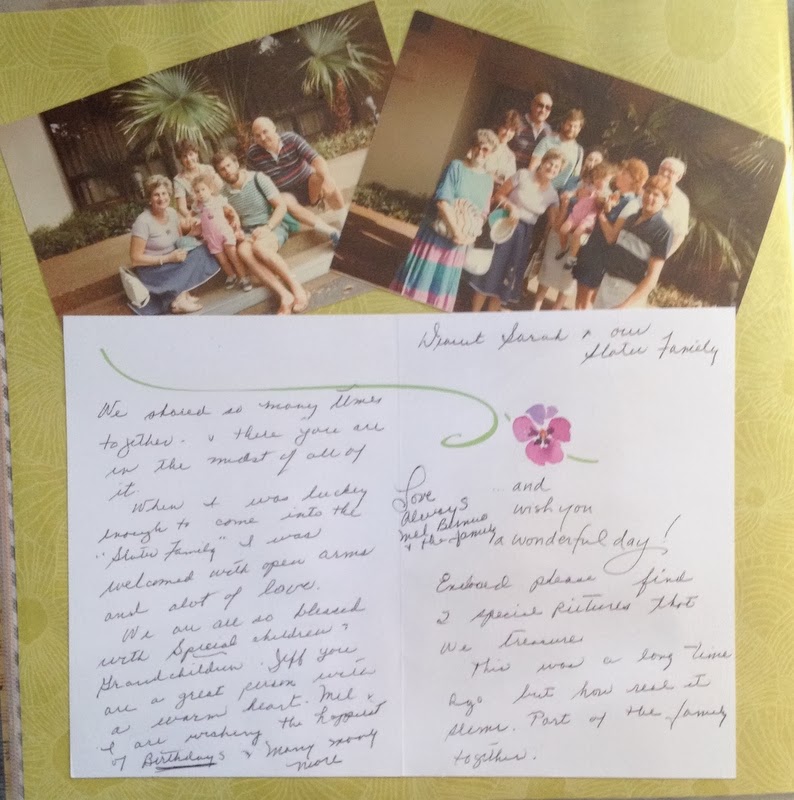 We shared so many times
together. & there you are
in the midst of all of
it.
When I was lucky
enough to come into the
"Slater Family" I was
welcomed with open arms
and alot of love.
We are all so blessed
with Special children &
Grandchildren. Jeff you
are a great person with
a warm heart. Mel &
I are wishing the happiest
of Birthdays & Many many
more
Dearest Sarah & our
Slater Family
...and
wish you
a wonderful day!
Love
Always
Mel Bernice
& the family
Enclosed please find
2 special pictures that
we treasure
This was a long time
ago but how real it
seems. Part of the family
together.